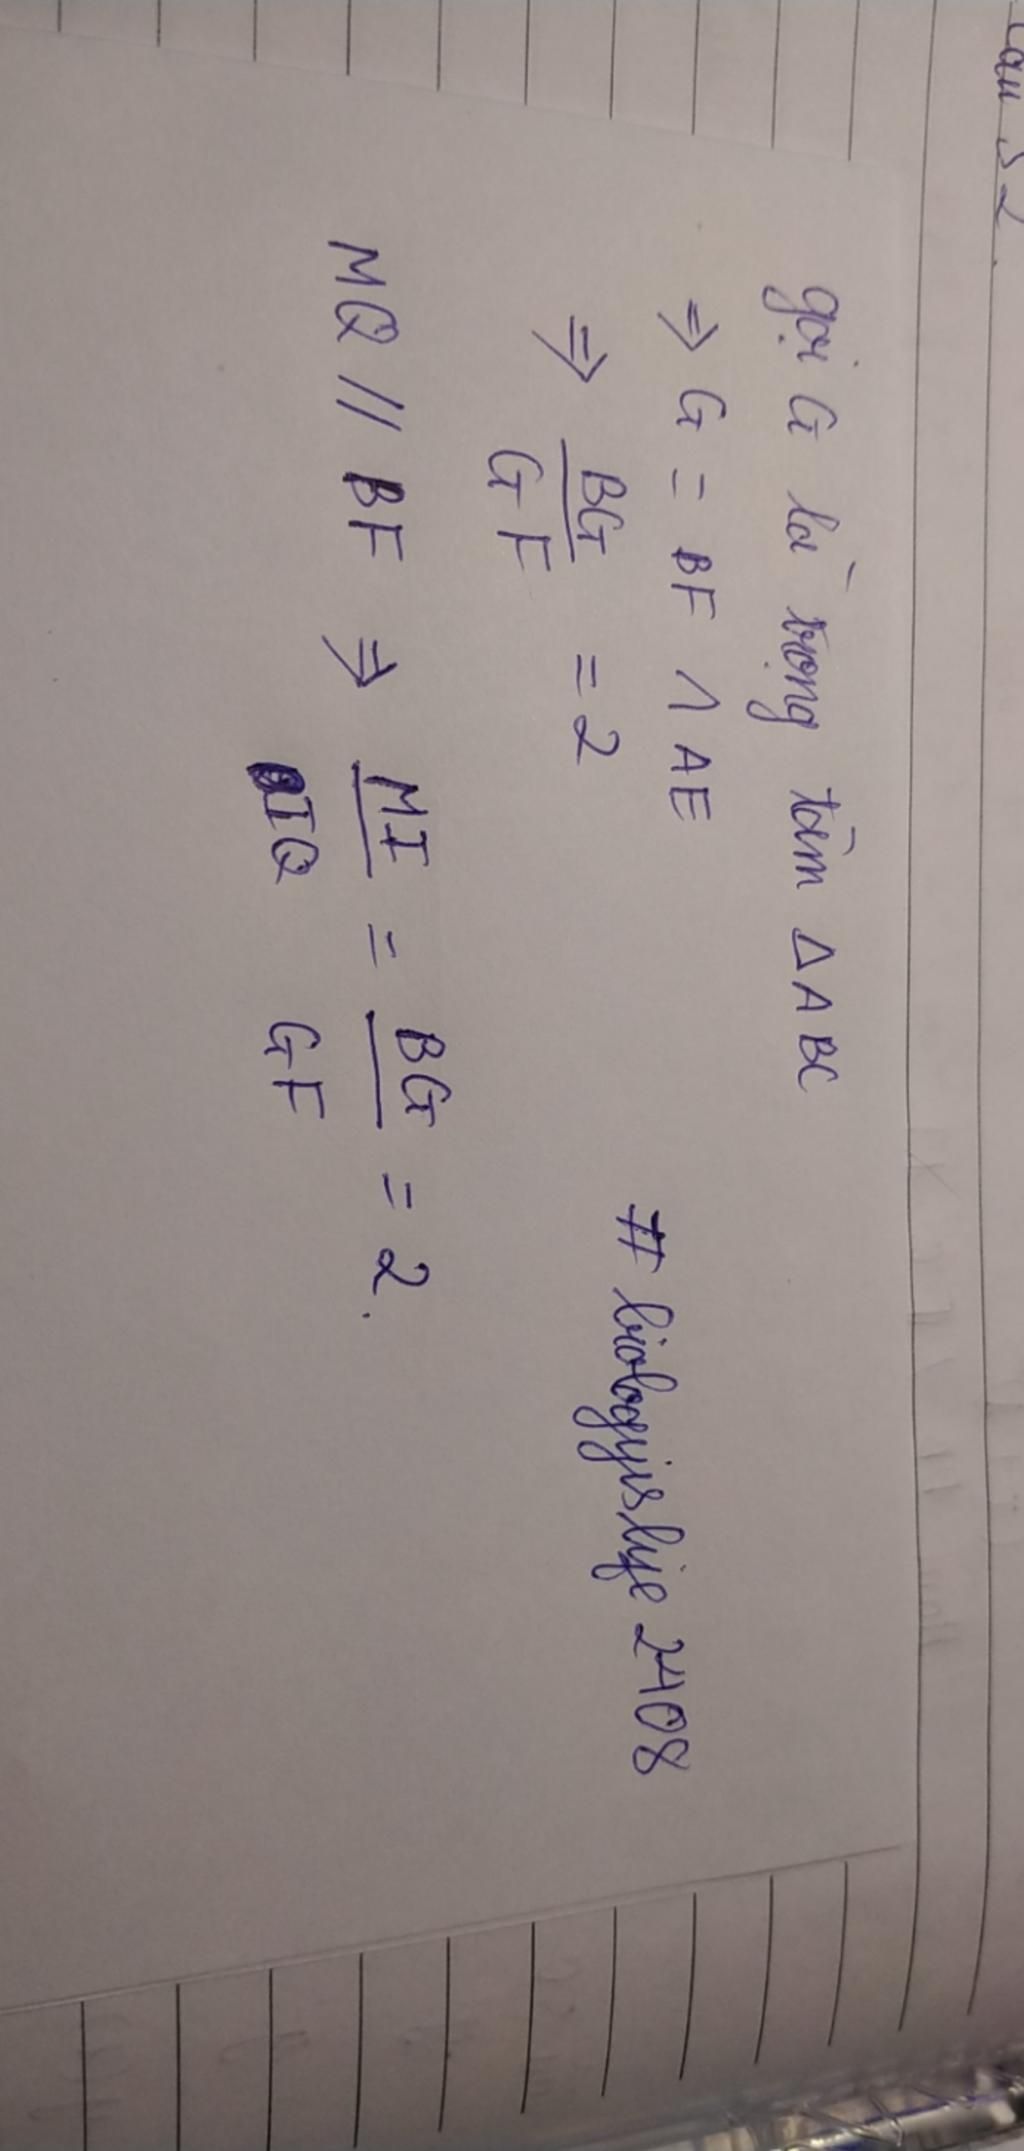 gọi G là trọng tâm △ABC
⇒ G = BF ∩ AE
⇒ BG/GF = 2
# biologyislife 2408
MQ // BF ⇒ MI/IQ = BG/GF = 2.